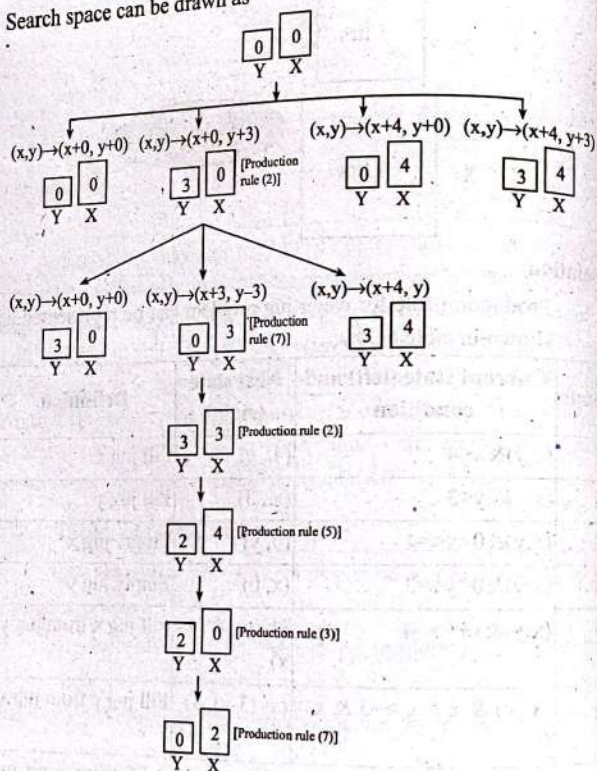 Search space can be drawn as
0 0
Y X
(x,y)→(x+0, y+0) (x,y)→(x+0, y+3) (x,y)→(x+4, y+0) (x,y)→(x+4, y+3)
0 0 3 0 [Production rule (2)] 0 4 3 4
Y X Y X Y X Y X
(x,y)→(x+0, y+0) (x,y)→(x+3, y-3) (x,y)→(x+4, y)
3 0 0 3 [Production rule (7)] 3 4
Y X Y X Y X
3 3 [Production rule (2)]
Y X
2 4 [Production rule (5)]
Y X
2 0 [Production rule (3)]
Y X
0 2 [Production rule (7)]
Y X